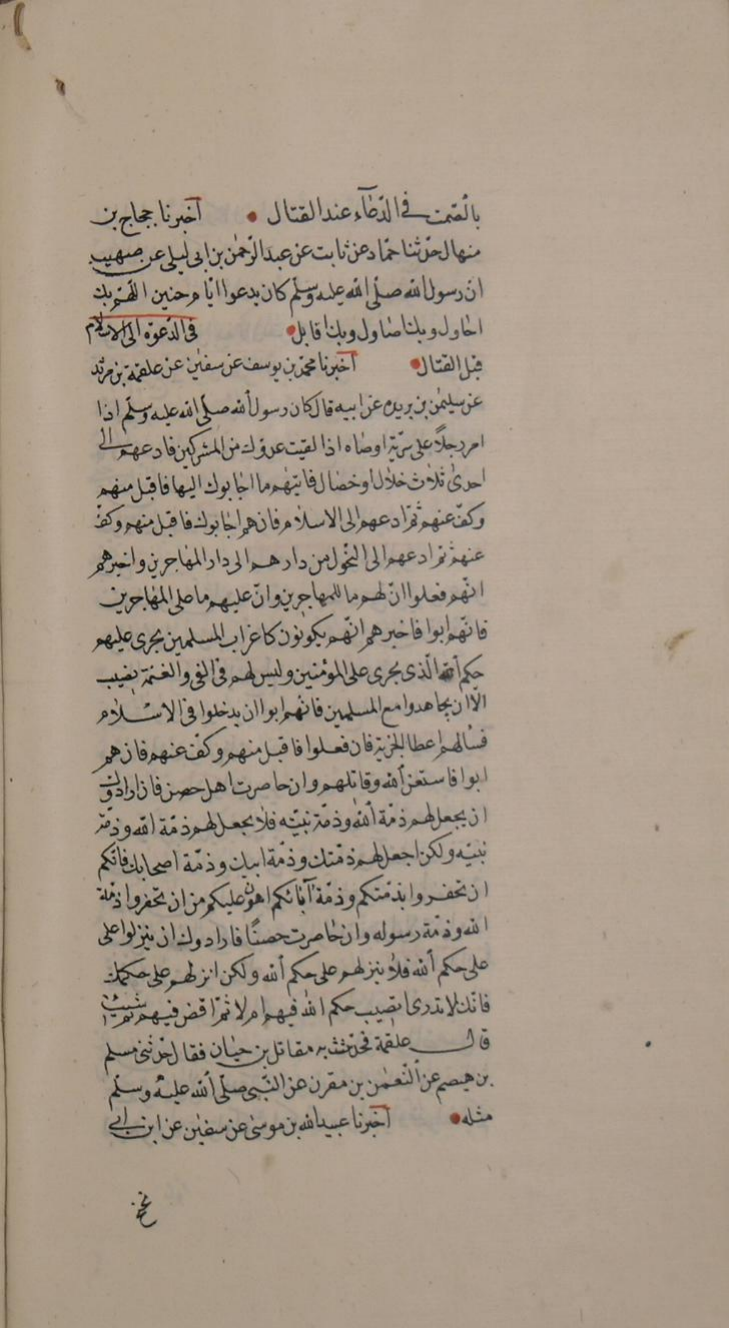 بالصمت في الدّعآء عند القتال • اخبرنا حجاج بن
منهال حدّثنا حمّاد عن ثابت عن عبد الرّحمٰن بن ابى ليلى عن صهيب
ان رسول الله صلّى الله عليه وسلّم كان يدعوا ايّام حنين اللهّم بك
احاول وبك اصاول وبك اقاتل • فى الدّعوة الى الاسلام
قبل القتال • اخبرنا محمّد بن يوسف عن سفيٰن عن علقمة بن مرثد
عن سليمٰن بن بريده عن ابيه قال كان رسول الله صلّى الله عليه وسلّم اذا
امر رجلاً على سريّة اوصاه اذا لقيت عدوّك من المشركين فادعهم الى
احدىٰ ثلاث خلال او خصال فايتهم ما اجابوك اليها فاقبل منهم
وكفّ عنهم ثمّ ادعهم الى الاسلام فان هم اجابوك فاقبل منهم وكفّ
عنهم ثم ادعهم الى التحوّل من دارهم الى دار المهاجرين واخبرهم
انّهم فعلوا انّ لهم ما للمهاجرين وانّ عليهم ما على المهاجرين
فانهم ابوا فاخبرهم انّهم يكونون كاعراب المسلمين يجرى عليهم
حكم الله الّذى يجرى على المؤمنين وليس لهم فى الفئ والغنمة نصيب
الّا ان يجاهدوا مع المسلمين فانهم ابوا ان يدخلوا فى الاسلام
فسالهم اعطا الجزية فان فعلوا فاقبل منهم وكفّ عنهم فان هم
ابوا فاستعن الله وقاتلهم وان حاصرت اهل حصن فان ارادوك
ان يجعل لهم ذمّة الله وذمّة نبيّه فلا يجعل لهم ذمّة الله وذمّة
نبيّه ولكن اجعل لهم ذمّتك وذمّة ابيك وذمّة اصحابك فانكم
ان تخفروا بذمّتكم وذمّة آبائكم اهون عليكم من ان تخفروا ذمّة
الله وذمّة رسوله وان حاصرت حصنًا فارادوك ان ينزلوا على
على حكم الله فلا ينزلهم على حكم الله ولكن انزلهم على حكمك
فانّك لا تدرى اتصيب حكم الله فيهم ام لا ثمّ اقض فيهم بم شيت
قال علقمة فحدّثت به مقاتل بن حيان فقال حدّثنى مسلم
بن هيصم عن النّعمٰن بن مقرن عن النّبى صلّى الله عليه وسلّم
مثله • اخبرنا عبيد الله بن موسىٰ عن سفيٰن عن ابن ابى